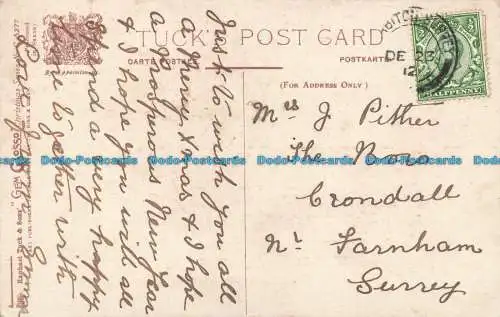 TUCK'S POST CARD
CARTE POSTALE
POSTKARTE
(FOR ADDRESS ONLY)
DE 23
12
HALFPENNY
Mrs J. Pither
The
Crondall
Nr Farnham
Surrey
Just to wish you all
a Merry Xmas & I hope
a Prosperous New Year
& I hope you will all
spend a very happy
time together with
Love
Raphael Tuck & Sons'
Dodo-Postcards Dodo-Postcards Dodo-Postcards Dodo-Postcards